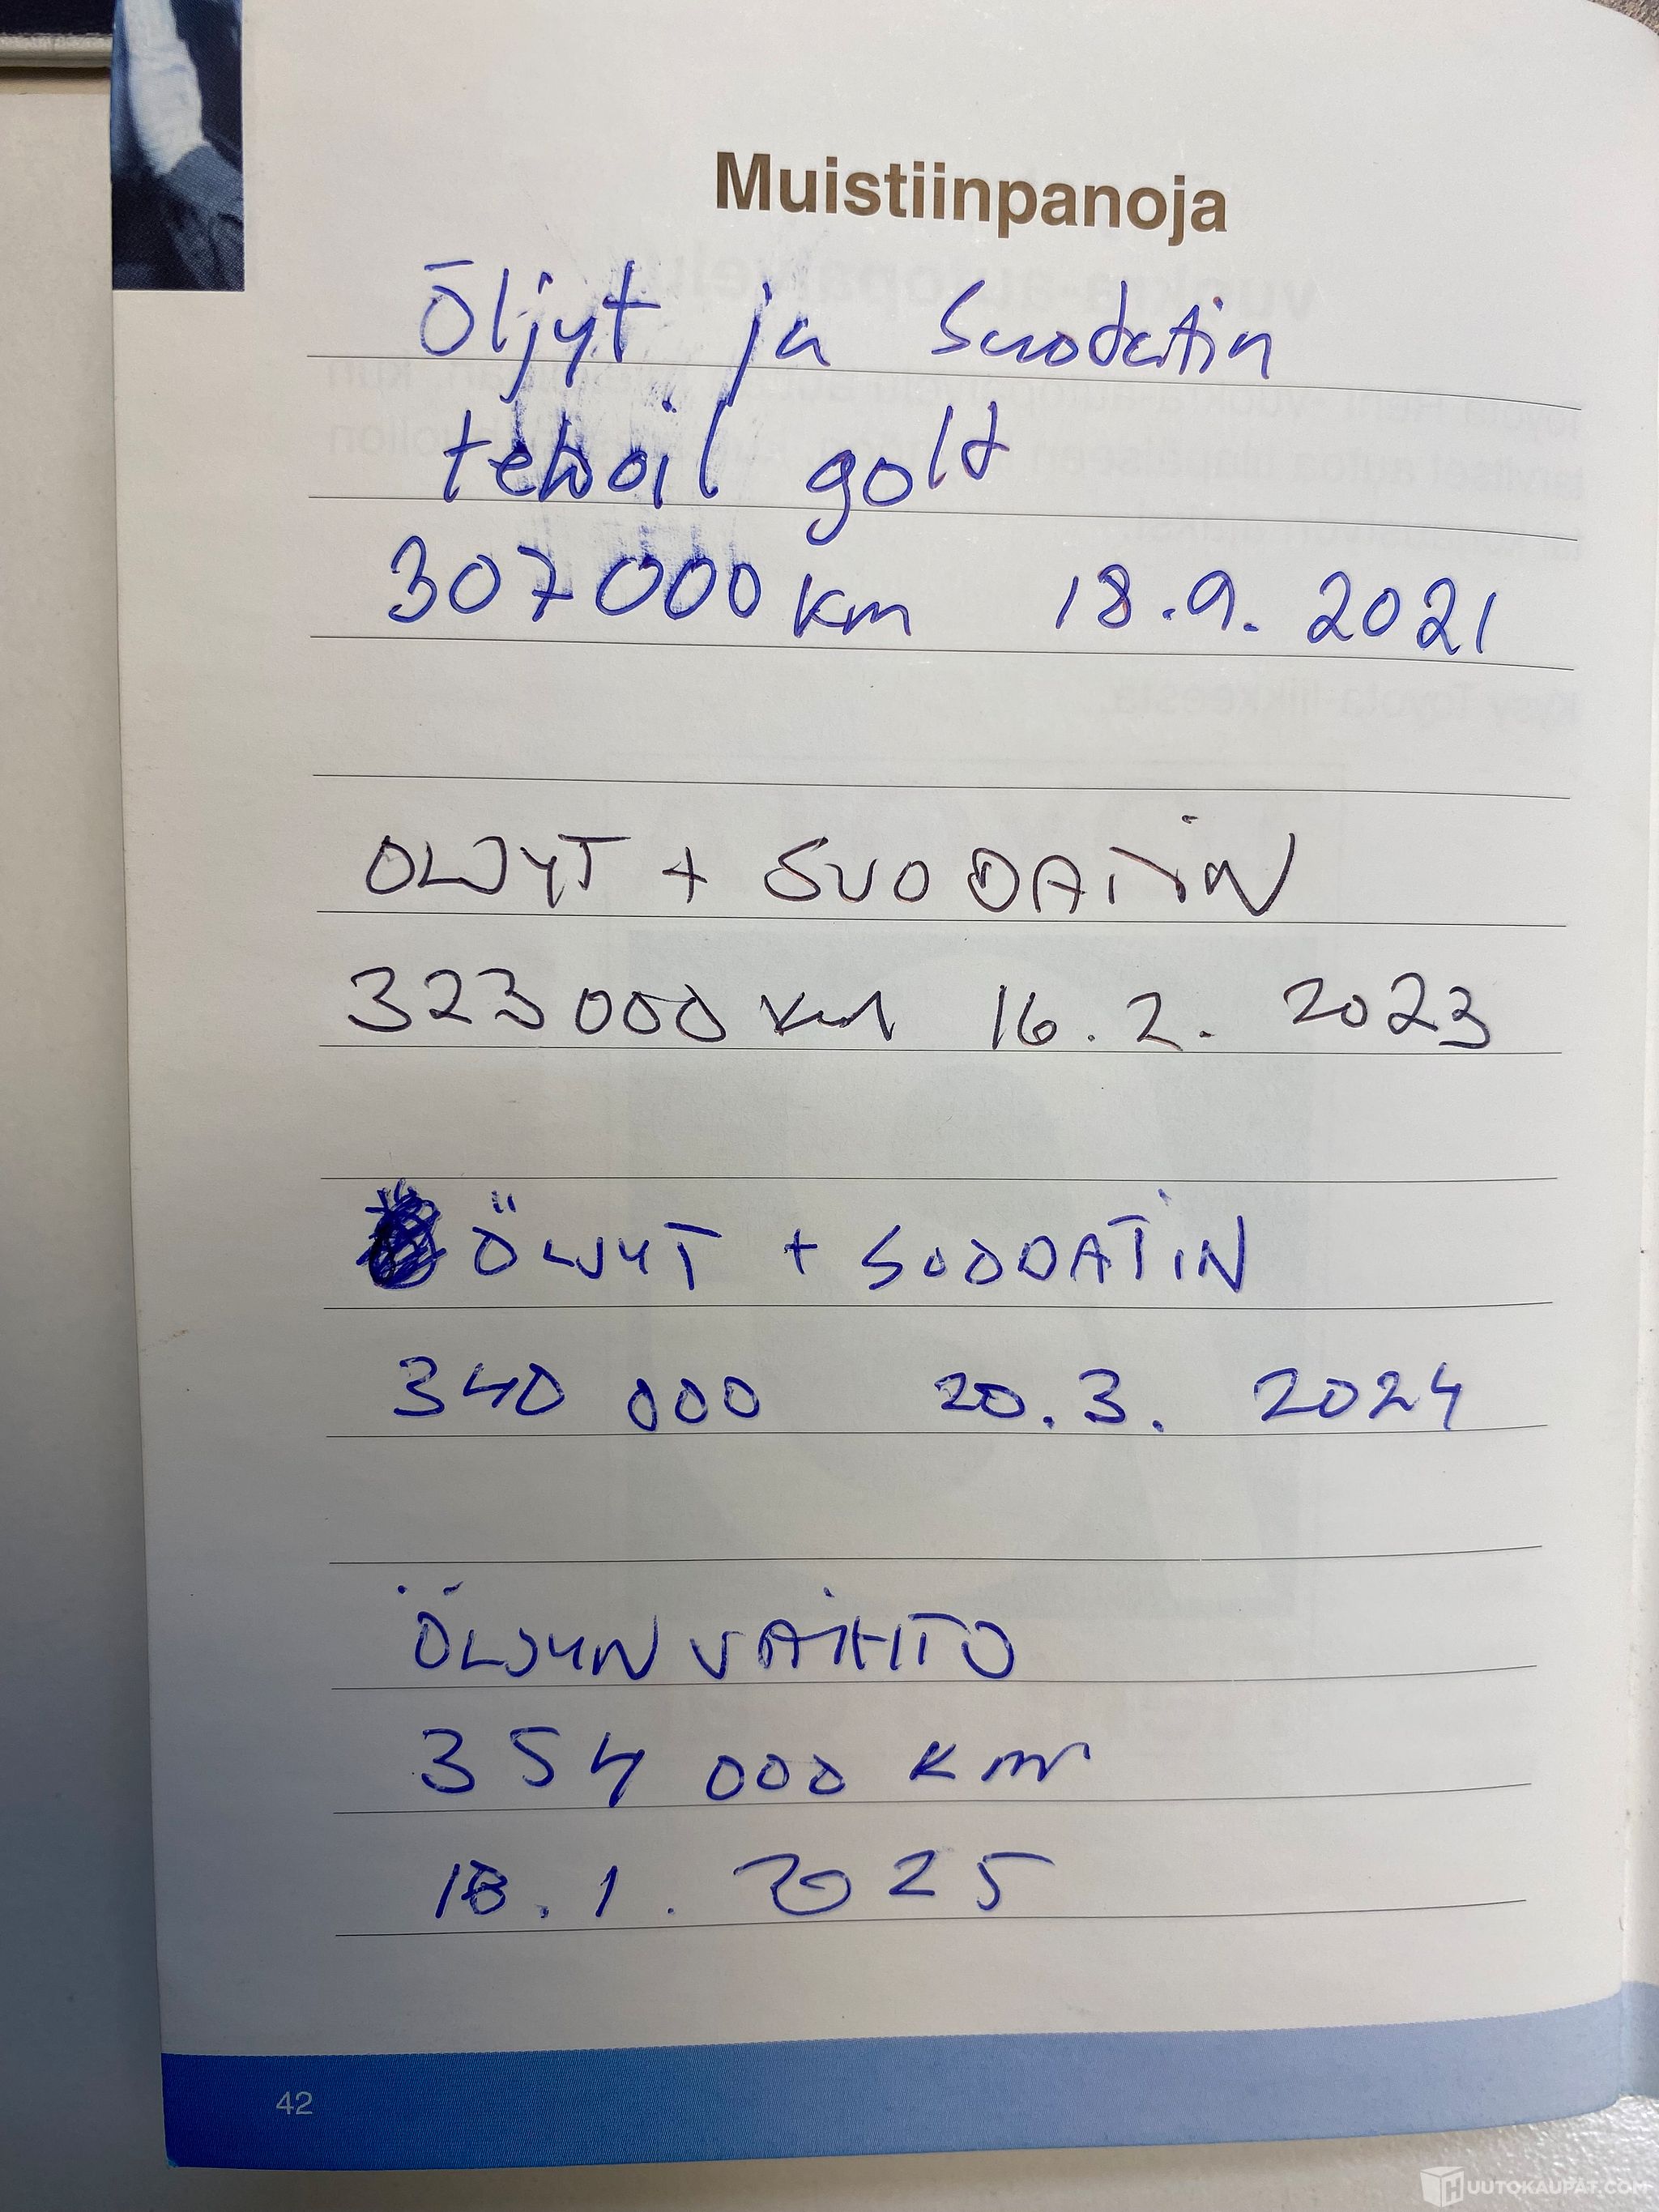 Muistiinpanoja
Öljyt ja Suodatin
tehoil gold
307000 km 18.9.2021
OLJYT + SUODATIN
323000 km 16.2.2023
ÖLJYT + SUODATIN
340 000 20.3.2024
ÖLJYN VAIHTO
354 000 km
18.1.2025
42
HUUTOKAUPAT.COM